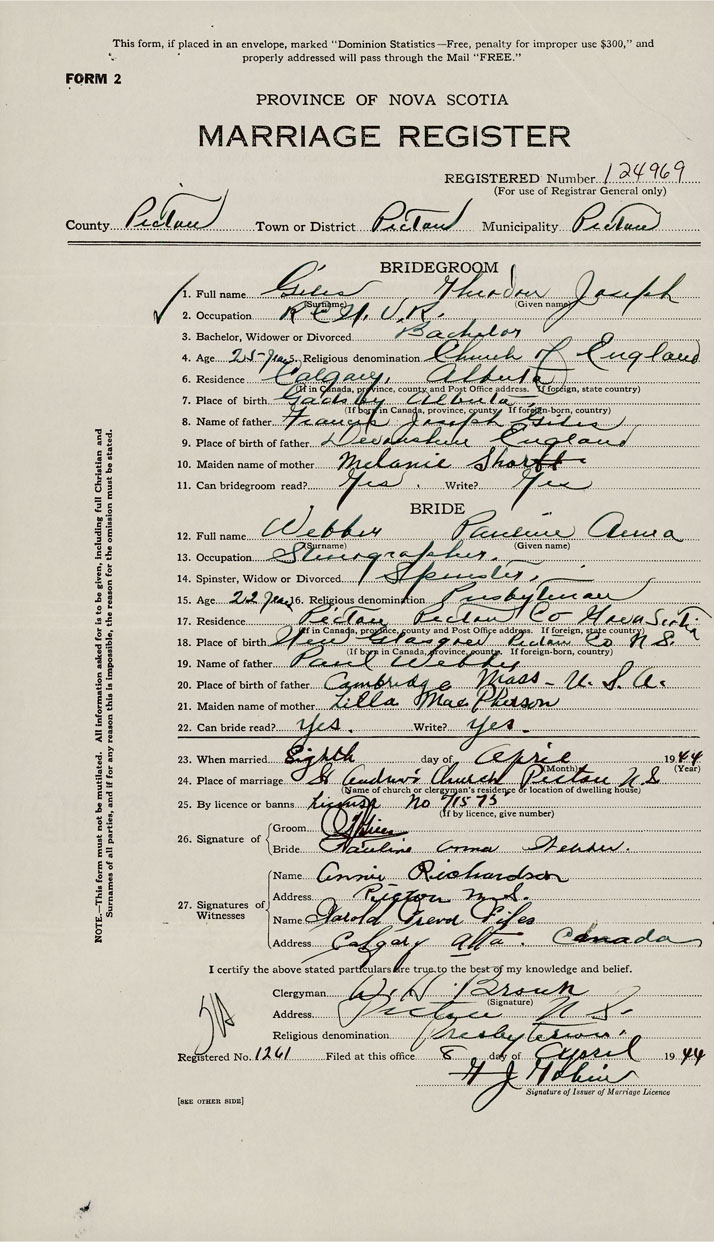 This form, if placed in an envelope, marked "Dominion Statistics—Free, penalty for improper use $300," and
properly addressed will pass through the Mail "FREE."
FORM 2
PROVINCE OF NOVA SCOTIA
MARRIAGE REGISTER
REGISTERED Number 124969
(For use of Registrar General only)
County Pictou Town or District Pictou Municipality Pictou
BRIDEGROOM
1. Full name Giles Theodore Joseph
(Surname) (Given name)
2. Occupation R.C.N.V.R.
3. Bachelor, Widower or Divorced Bachelor
4. Age 25 yrs 5. Religious denomination Church of England
6. Residence Calgary, Alberta
(If in Canada, province, county and Post Office address. If foreign, state country)
7. Place of birth Gadsby Alberta
(If born in Canada, province, county. If foreign-born, country)
8. Name of father Francis Joseph Giles
9. Place of birth of father Devonshire England
10. Maiden name of mother Melanie
11. Can bridegroom read? Yes Write? Yes
BRIDE
12. Full name Webber Pauline Anna
(Surname) (Given name)
13. Occupation Stenographer.
14. Spinster, Widow or Divorced Spinster.
15. Age 22 yrs 16. Religious denomination Presbyterian
17. Residence Pictou Pictou Co Nova Scotia
(If in Canada, province, county and Post Office address. If foreign, state country)
18. Place of birth New Glasgow Pictou Co N.S.
(If born in Canada, province, county. If foreign-born, country)
19. Name of father Paul Webber
20. Place of birth of father Cambridge Mass - U.S.A.
21. Maiden name of mother Lilla MacPherson
22. Can bride read? Yes. Write? Yes.
23. When married Eighth day of April 1944
(Month) (Year)
24. Place of marriage St Andrew's Church Pictou N.S
(Name of church or clergyman's residence or location of dwelling house)
25. By licence or banns License No 71573
(If by licence, give number)
26. Signature of
Groom Giles
Bride Pauline Anna Webber.
27. Signatures of Witnesses
Name Annie Richardson
Address Pictou N.S.
Name Harold Giles
Address Calgary Alta. Canada
I certify the above stated particulars are true to the best of my knowledge and belief.
Clergyman W. H. Brown
(Signature)
Address Pictou N.S.
Religious denomination Presbyterian.
Registered No. 1261 Filed at this office 8 day of April 1944
Signature of Issuer of Marriage Licence
[SEE OTHER SIDE]
NOTE.—This form must not be mutilated. All information asked for is to be given, including full Christian and
Surnames of all parties, and if for any reason this is impossible, the reason for the omission must be stated.